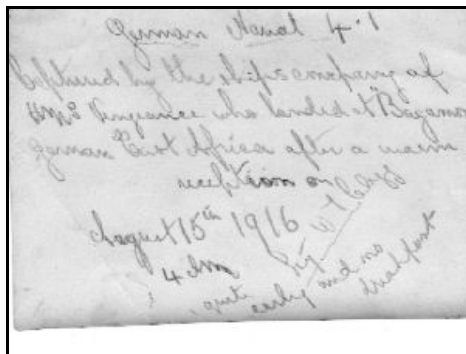 German Naval 4.1
Captured by the ships company of
HMS Vengeance who landed at Bagamo
German East Africa after a warm
reception on
August 15th 1916
4 Am
quite
early and no
breakfast